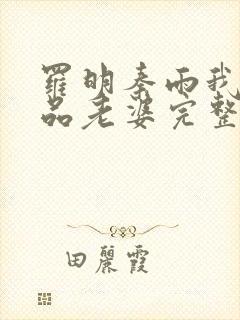 羅明秦雨我
品老婆完整
田麗霞